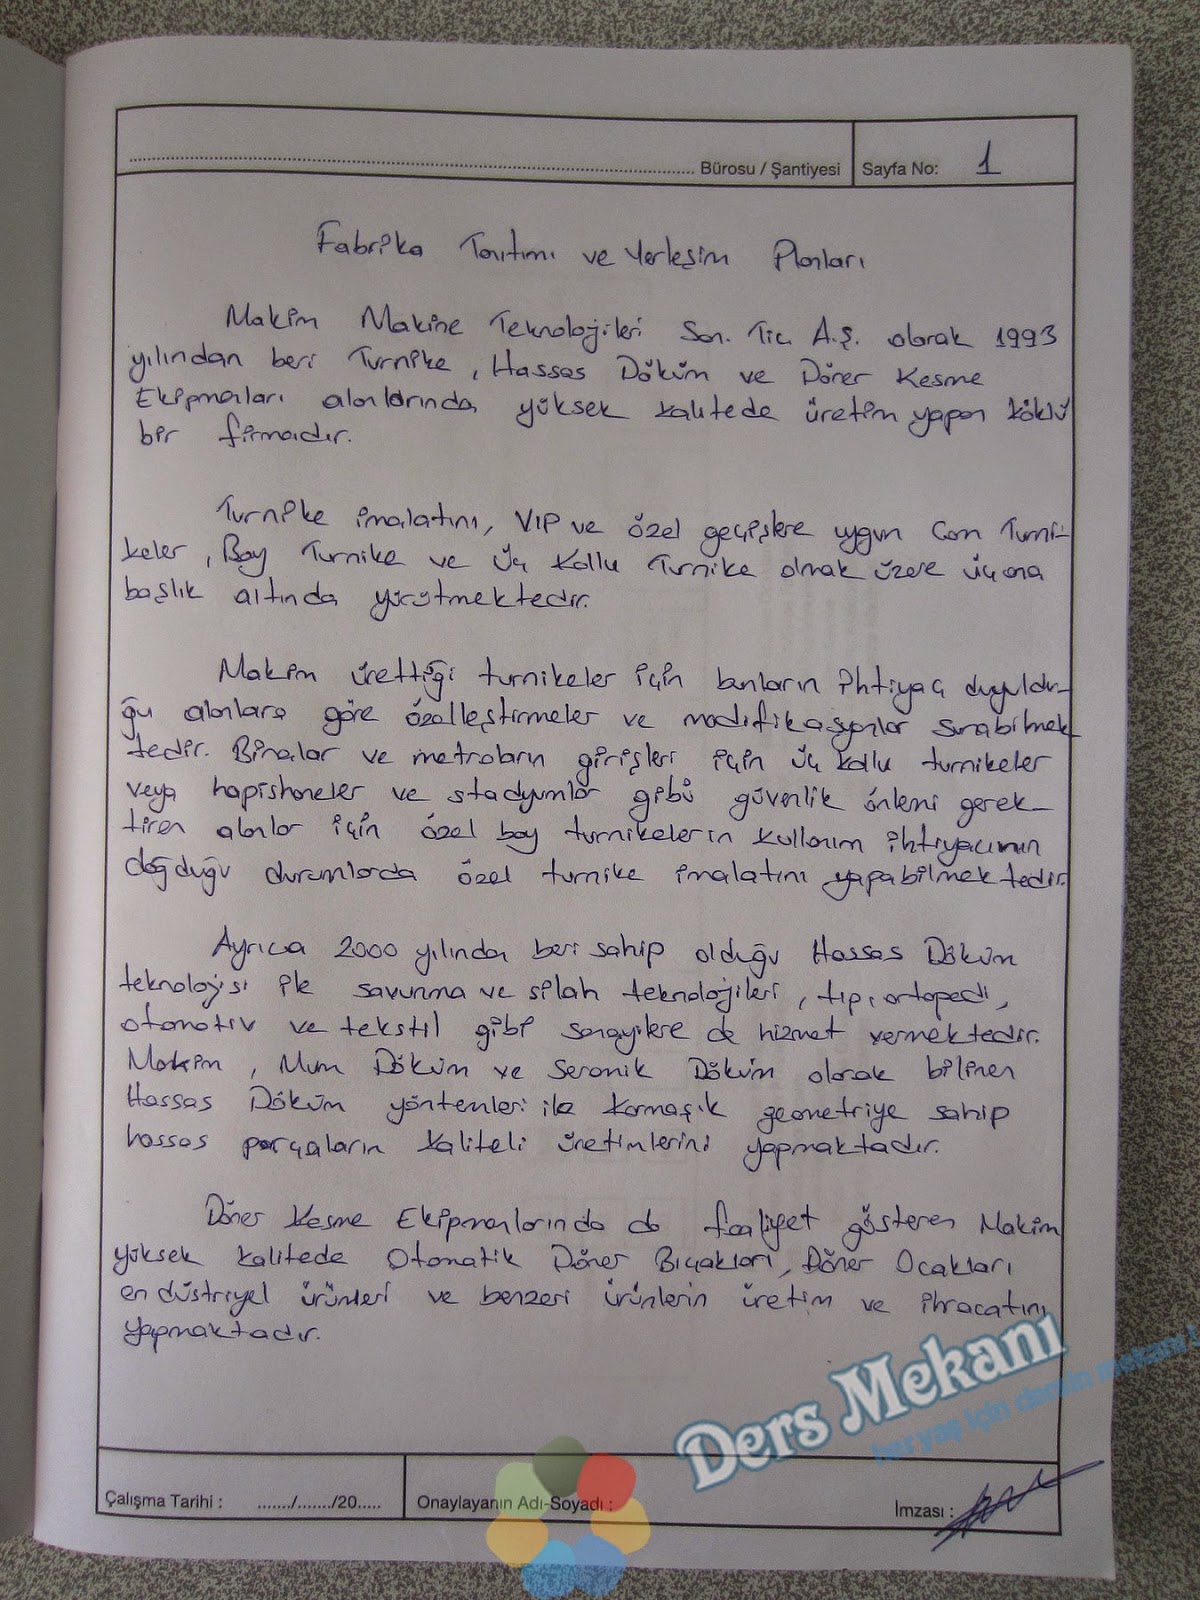 Bürosu / Şantiyesi Sayfa No: 1
Fabrika Tanıtımı ve Yerleşim Planları
Makim Makine Teknolojileri San. Tic. A.Ş. olarak 1993
yılından beri Turnike, Hassas Döküm ve Döner Kesme
Ekipmanları alanlarında yüksek kalitede üretim yapan köklü
bir firmadır.
Turnike imalatını, VIP ve özel geçişlere uygun Cam Turni-
keler, Boy Turnike ve Üç Kollu Turnike olmak üzere üç ana
başlık altında yürütmektedir.
Makim ürettiği turnikeler için bunların ihtiyaç duyuldu-
ğu alanlara göre özelleştirmeler ve modifikasyonlar sunabilmek-
tedir. Binalar ve metroların girişleri için üç kollu turnikeler
veya hapishaneler ve stadyumlar gibi güvenlik önlemi gerek-
tiren alanlar için özel boy turnikelerin kullanım ihtiyacının
doğduğu durumlarda özel turnike imalatını yapabilmektedir.
Ayrıca 2000 yılından beri sahip olduğu Hassas Döküm
teknolojisi ile savunma ve silah teknolojileri, tıp, ortopedi,
otomotiv ve tekstil gibi sanayilere de hizmet vermektedir.
Makim, Mum Döküm ve Seramik Döküm olarak bilinen
Hassas Döküm yöntemleri ile karmaşık geometriye sahip
hassas parçaların kaliteli üretimlerini yapmaktadır.
Döner Kesme Ekipmanlarında da faaliyet gösteren Makim
yüksek kalitede Otomatik Döner Bıçakları, Döner Ocakları
endüstriyel ürünleri ve benzeri ürünlerin üretim ve ihracatını
yapmaktadır.
Ders Mekanı
her yaş için dersin mekanı
Çalışma Tarihi : ......./......./20..... Onaylayanın Adı-Soyadı : İmzası :